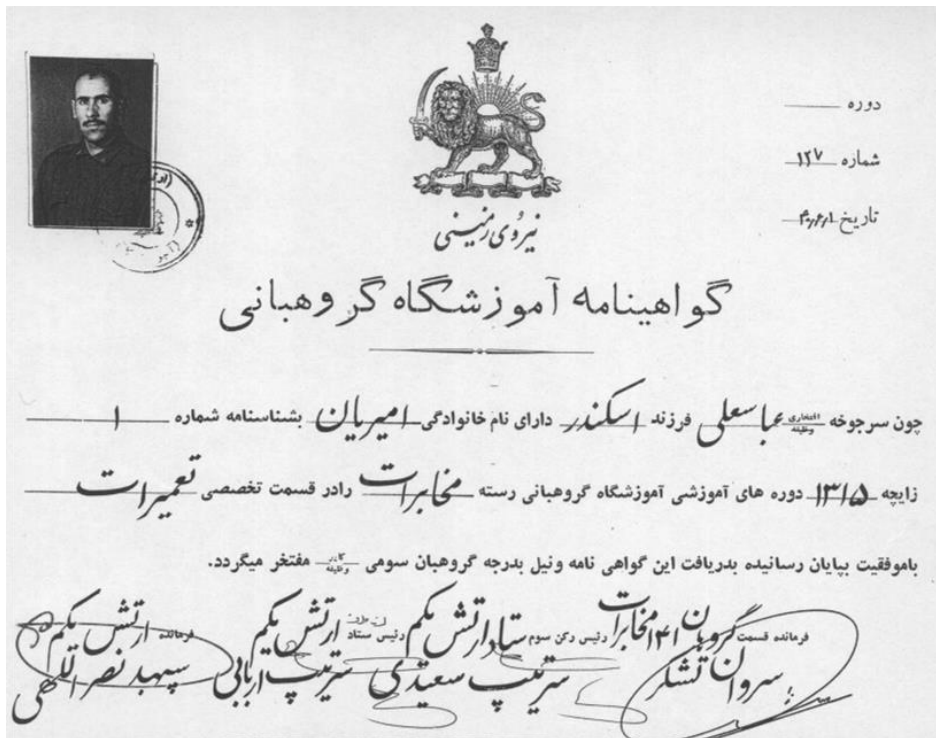 دوره
شماره ۱۲۷
تاریخ
نیروی زمینی
گواهینامه آموزشگاه گروهبانی
چون سرجوخه افتخاری وظیفه عباسعلی فرزند اسکندر دارای نام خانوادگی امیریان بشناسنامه شماره ۱
زایچه ۱۳۱۵ دوره های آموزشی آموزشگاه گروهبانی رسته مخابرات رادر قسمت تخصصی تعمیرات
باموفقیت بپایان رسانیده بدریافت این گواهی نامه ونیل بدرجه گروهبان سومی وظیفه مفتخر میگردد.
فرمانده قسمت ۱۴۱ مخابرات رئیس رکن سوم ستاد ارتش یکم رئیس ستاد ارتش یکم فرمانده ارتش یکم
سروان تشکر سرتیپ سعیدی سرتیپ اربابی سپهبد نصراللهی